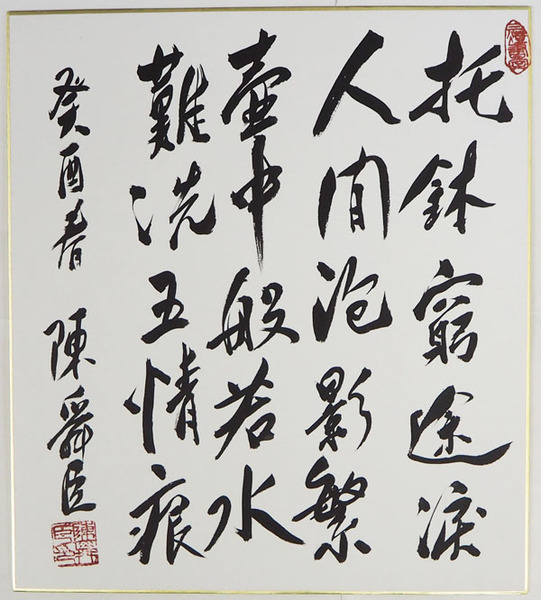 托鉢窮途淚
人間泡影繁
壺中般若水
難洗五情痕
癸酉春 陳舜臣